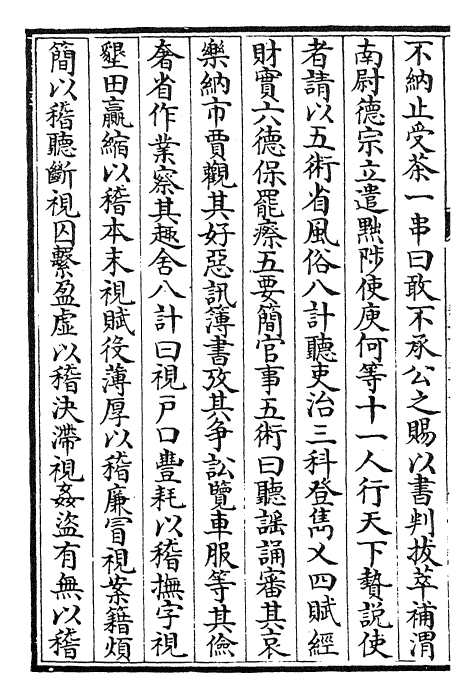 不納止受茶一串曰敢不承公之賜以書判拔萃補渭
南尉德宗立遣黜陟使庾何等十一人行天下贄説使
者請以五術省風俗八計聽吏治三科登雋乂四賦經
財實六德保罷瘵五要簡官事五術曰聽謡誦審其哀
樂納市賈觀其好惡訊簿書攷其争訟覽車服等其儉
奢省作業察其趣舍八計曰視戸口豐耗以稽撫字視
墾田贏縮以稽本末視賦役薄厚以稽廉冒視案籍煩
簡以稽聽斷視囚繫盈虚以稽決滯視姦盗有無以稽